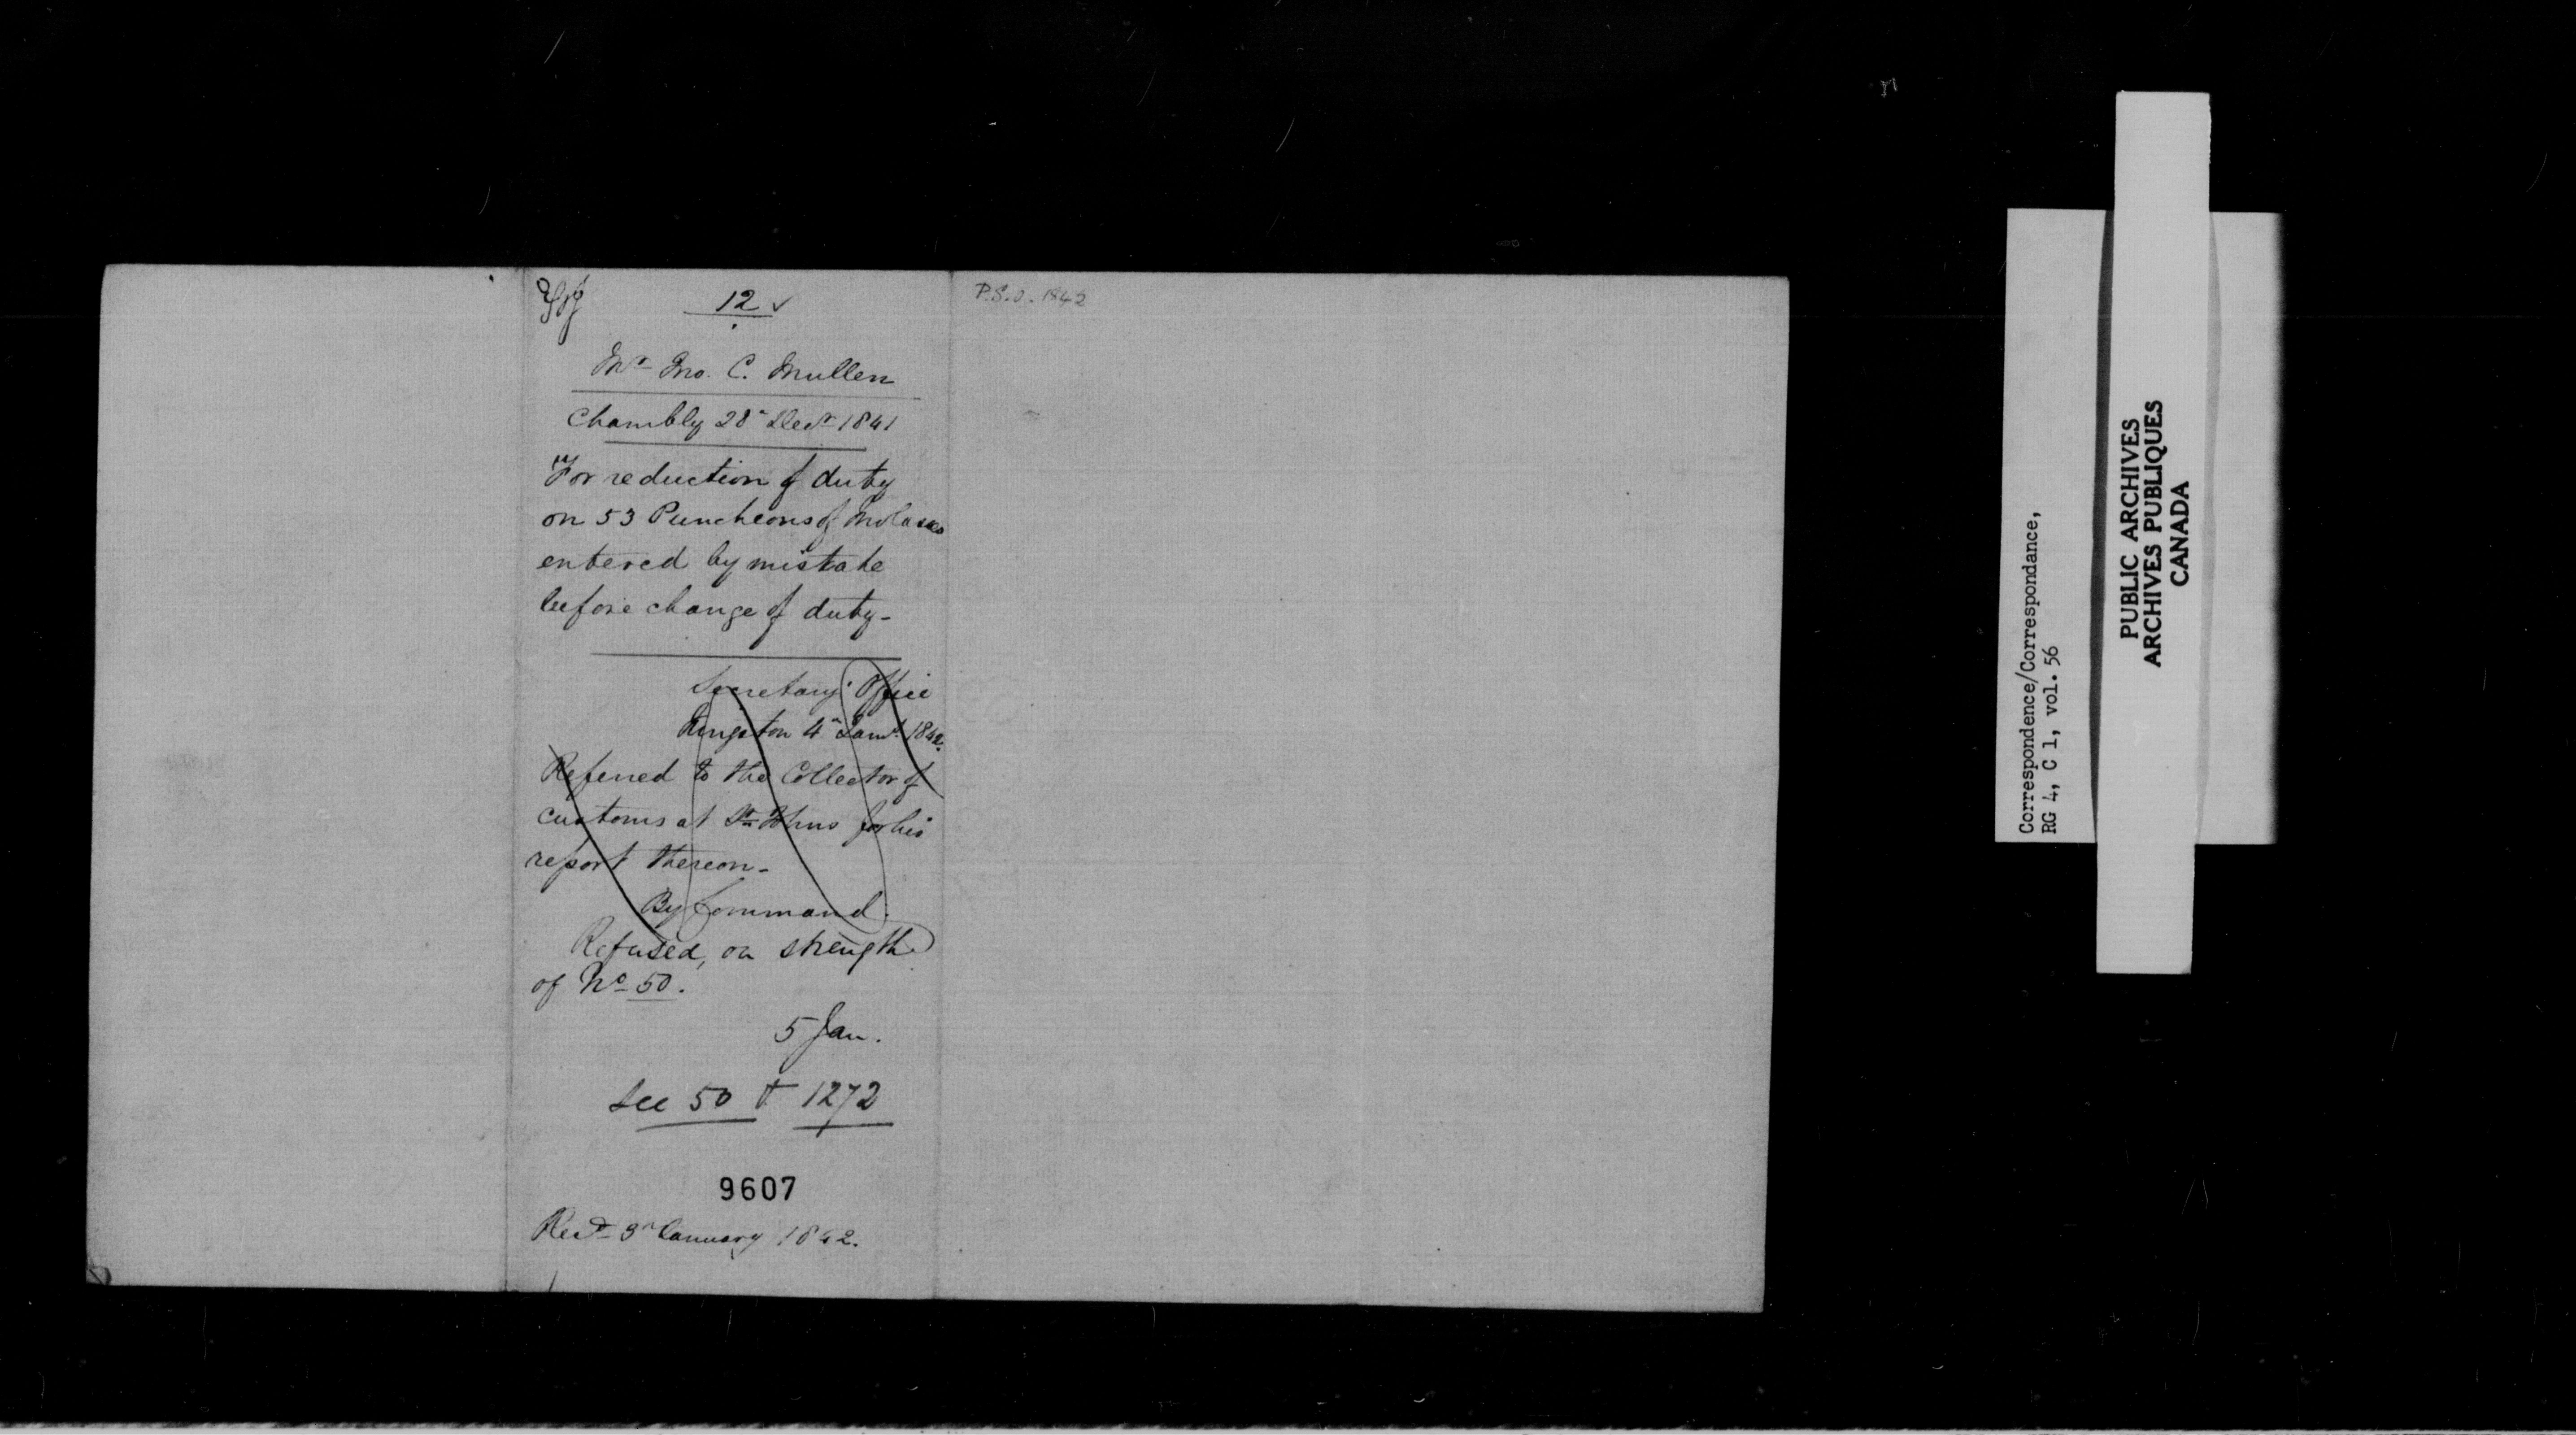 12 ✓
Mr Jno. C. Mullen
Chambly 28th Decr 1841
For reduction of duty
on 53 Puncheons of Molasses
entered by mistake
before change of duty-
Secretary's Office
Kingston 4th Jany. 1842.
Referred to the Collector of
customs at St Johns for his
report thereon-
By Command.
Refused, on strength
of No 50.
5 Jan.
See 50 & 1272
9607
Recd 3rd January 1842.
P.S.O. 1842
Correspondence/Correspondance,
RG 4, C 1, vol. 56
PUBLIC ARCHIVES
ARCHIVES PUBLIQUES
CANADA